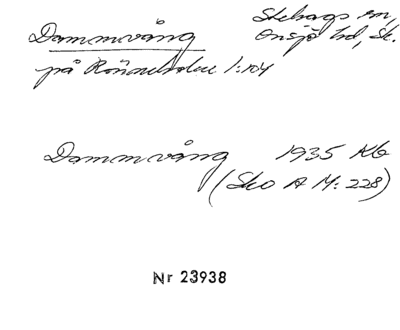 Dammvång Stehags sn,
Onsjö hd, Sk.
på Rönneholm 1:104
Dammvång 1935 Kb
(Sko A M: 228)
Nr 23938